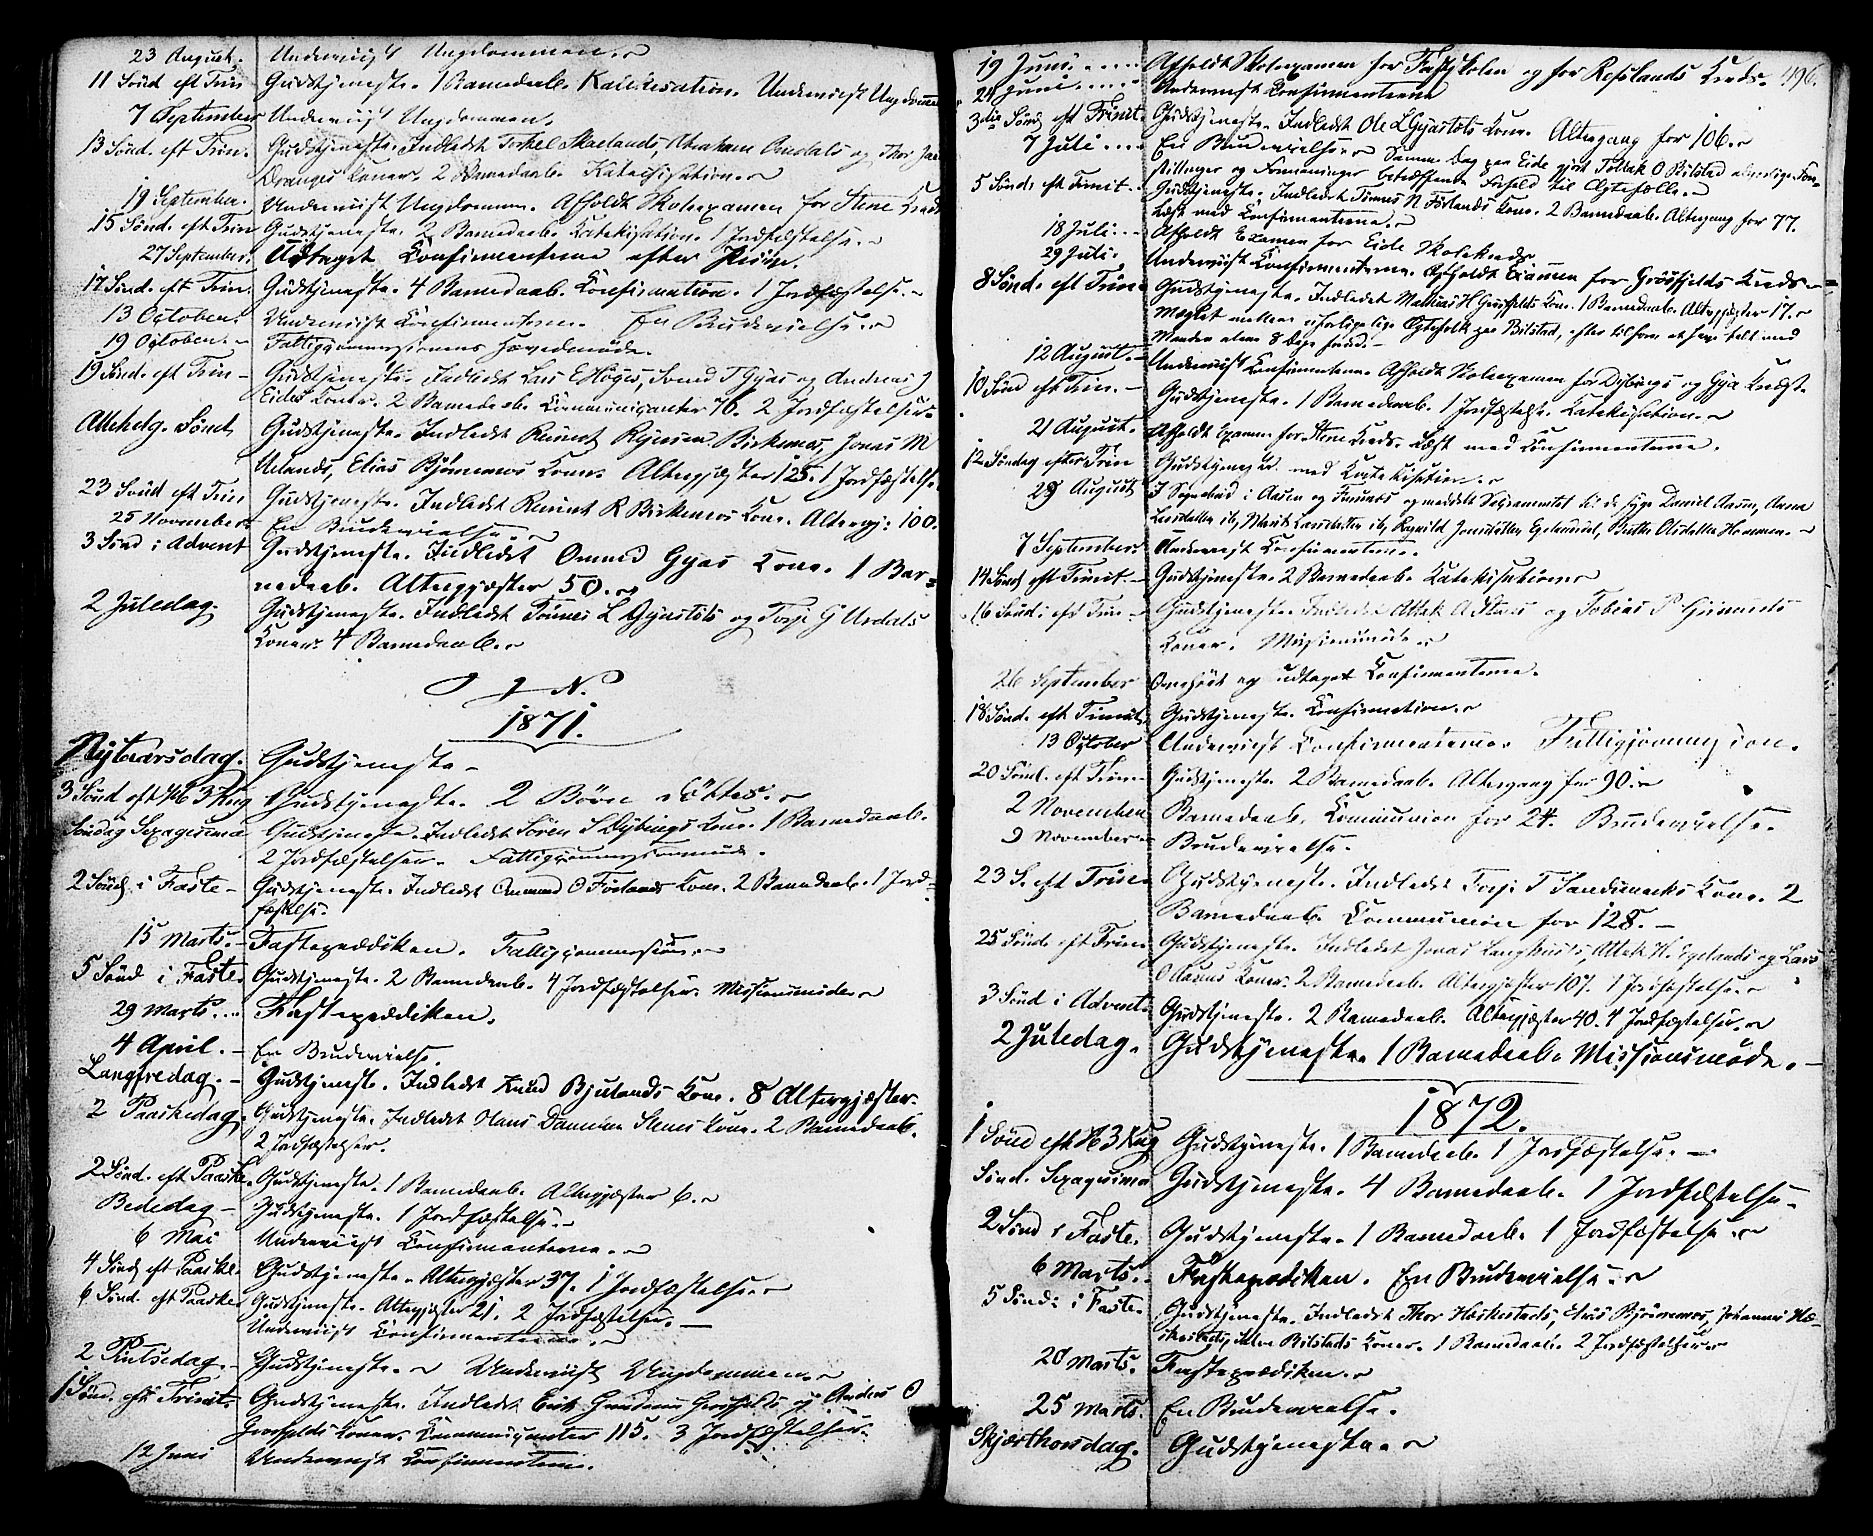 23 August. Underviist Ungdommen.
11 Sönd eft Trin Gudstjeneste. 1 Barnedaab. Katekisation. Underviist Ungdommen
7 September Underviist Ungdommen.
13 Sönd. eft Trin. Gudstjeneste. Indledt Torkel Skaelands, Abraham Omdals og Thor
Dranges Koner. 2 Barnedaab. Katekisation.
19 September. Underviist Ungdommen. Afholdt Skoleexamen for Stene Kreds
15 Sönd. eft Trin Gudstjeneste. 2 Barnedaab. Katekisation. 1 Jordfæstelse.
27 September. Udtaget Confirmanterne efter Pröve.
17 Sönd. eft Trin. Gudstjeneste. 4 Barnedaab. Confirmation. 1 Jordfæstelse.
13 October. Underviist Confirmanterne. En Brudevielse.
19 October. Fattigcommissionens Hovedmöde.
19 Sönd. eft Trin Gudstjeneste. Indledt Lars E Höges, Svend T Gyas og Andreas J
Eides Koner. 2 Barnedaab. Communicanter 76. 2 Jordfæstelser.
Allehelg. Sönd. Gudstjeneste. Indledt Reinert Reinersen Birkemos, Jonas M
Uelands, Elias Björnemos Koner. Altergjæster 125. 1 Jordfæstelse
23 Sönd eft Trin Gudstjeneste. Indledt Reinert R Birkemos Kone. Altergj: 100.
25 November En Brudevielse.
3 Sönd i Advent Gudstjeneste. Indledt Omund Gyas Kone. 1 Bar=
nedaab. Altergjæster 50.
2 Juledag. Gudstjeneste. Indledt Tönnes L Gyastöls og Torje G Urdals
Koner. 4 Barnedaab.
I J N.
1871.
Nytaarsdag. Gudstjeneste
3 Sönd eft H 3 Kng Gudstjeneste. 2 Börn döbtes.
Söndag Sexagesima Gudstjeneste. Indledt Sören S Dybings Kone. 1 Barnedaab.
2 Jordfæstelser. Fattigcommissionsmöde.
2 Sönd. i Faste Gudstjeneste. Indledt Omund O Förlands Kone. 2 Barnedaab. 1 Jord=
fæstelse.
15 Marts. Fasteprædiken. Fattigcommission.
5 Sönd i Faste. Gudstjeneste. 2 Barnedaab. 4 Jordfæstelser. Missionsmöde.
29 Marts. Fasteprædiken.
4 April. En Brudevielse.
Langfredag. Gudstjeneste. Indledt Knud Bjulands Kone. 8 Altergjæster.
2 Paaskedag. Gudstjeneste. Indledt Hans Danielsen Stenes Kone. 2 Barnedaab.
2 Jordfæstelser.
2 Sönd. eft Paaske. Gudstjeneste. 1 Barnedaab. Altergjæster 6.
Bededag Gudstjeneste. 1 Jordfæstelse.
6 Mai Underviist Confirmanterne.
4 Sönd eft Paaske. Gudstjeneste. Altergjæster 37. 1 Jordfæstelse.
6 Sönd. eft Paaske Gudstjeneste. Altergjæster 21. 2 Jordfæstelser.
Underviist Confirmanterne.
2 Pintsedag. Gudstjeneste. Underviist Ungdommen.
1 Sönd. eft Trinit. Gudstjeneste. Indledt Grosfjelds og Anders O
Grosfjelds Koner. Communicanter 115. 3 Jordfæstelser.
12 Juni Underviist Confirmanterne.
496.
19 Juni Afholdt Skoleexamen for Fastskolen og for Refslands Kreds.
24 Juni Underviist Confirmanterne
3die Sönd eft Trinit. Gudstjeneste. Indledt Ole L Gyastöls Kone. Altergang for 106.
7 Juli En Brudevielse. Samme Dag paa Eide gjort Tollak O Bilstad alvorlige Fore=
stillinger og Formaninger betræffende Forhold til Ægtefælle.
5 Sönd. eft Trinit. Gudstjeneste. Indledt Tönnes N Förlands Kone. 2 Barnedaab. Altergang for 77.
Læst med Confirmanterne.
18 Juli. Afholdt Examen for Eide Skolekreds.
29 Juli. Underviist Confirmanterne. Afholdt Examen for Grösfjelds Kreds.
8 Sönd. eft Trin Gudstjeneste. Indledt Mathias H Grösfjelds Kone. 1 Barnedaab. Altergjæster 17.
Mæglet mellem Ægtefolk paa Bilstad, efter tilforn at have talt med
Manden alene 8 Dage forud.
12 August. Underviist Confirmanterne. Afholdt Skoleexamen for Dybings og Gya Kreds.
10 Sönd eft Trin. Gudstjeneste. 1 Barnedaab. 1 Jordfæstelse. Katekisation.
21 August. Afholdt Examen for Stene Kreds. Læst med Confirmanterne.
12 Söndag efter Trin Gudstjeneste med Katekisation.
29 August I Sognebud i Aasen og meddelt Sacramentet til de syge Daniel Aasen, Anna
Larsdatter ib, Marit Larsdatter ib, Ragnild Jonsdatter Egelandsd, Berthe Olsdatter Hammen.
7 September. Underviist Confirmanterne.
14 Sönd. eft Trinit Gudstjeneste. 2 Barnedaab. Katekisation
16 Sönd. eft Trin Gudstjeneste. Indledt Atlek A Stenes og Tobias P Grimestö
Koner. Missionsmöde.
26 September Overhört og udtaget Confirmanterne.
18 Sönd. eft Trinit. Gudstjeneste. Confirmation.
13 October Underviist Confirmanterne. Fattigcommission.
20 Sönd. eft Trin Gudstjeneste. 2 Barnedaab. Altergang for 90.
2 November Barnedaab. Communion for 24. Brudevielse.
9 November Brudevielse.
23 S. eft Trin. Gudstjeneste. Indledt Torje T Sandsmarks Kone. 2
Barnedaab. Communion for 128.
25 Sönd. eft Trin. Gudstjeneste. Indledt Jonas Langhuus, Atlek H. Egelands og Lars
O Aasens Koner. 2 Barnedaab. Altergjæster 107. 1 Jordfæstelse.
3 Sönd i Advent. Gudstjeneste. 2 Barnedaab. Altergjæster 40. 4 Jordfæstelser.
2 Juledag. Gudstjeneste. 1 Barnedaab. Missionsmöde.
1872.
1 Sönd eft H 3 Kng Gudstjeneste. 1 Barnedaab. 1 Jordfæstelse.
Sönd. Sexagesima Gudstjeneste. 4 Barnedaab. 1 Jordfæstelse.
2 Sönd i Faste. Gudstjeneste. 1 Barnedaab. 1 Jordfæstelse.
6 Marts. Fasteprædiken. En Brudevielse.
5 Sönd. i Faste. Gudstjeneste. Indledt Thor Haskestads, Björnemos, Johannes Hæ=
skestads, Bilstads Koner. 1 Barnedaab. 2 Jordfæstelser.
20 Marts. Fasteprædiken.
25 Marts. En Brudevielse.
Skjærthorsdag. Gudstjeneste.